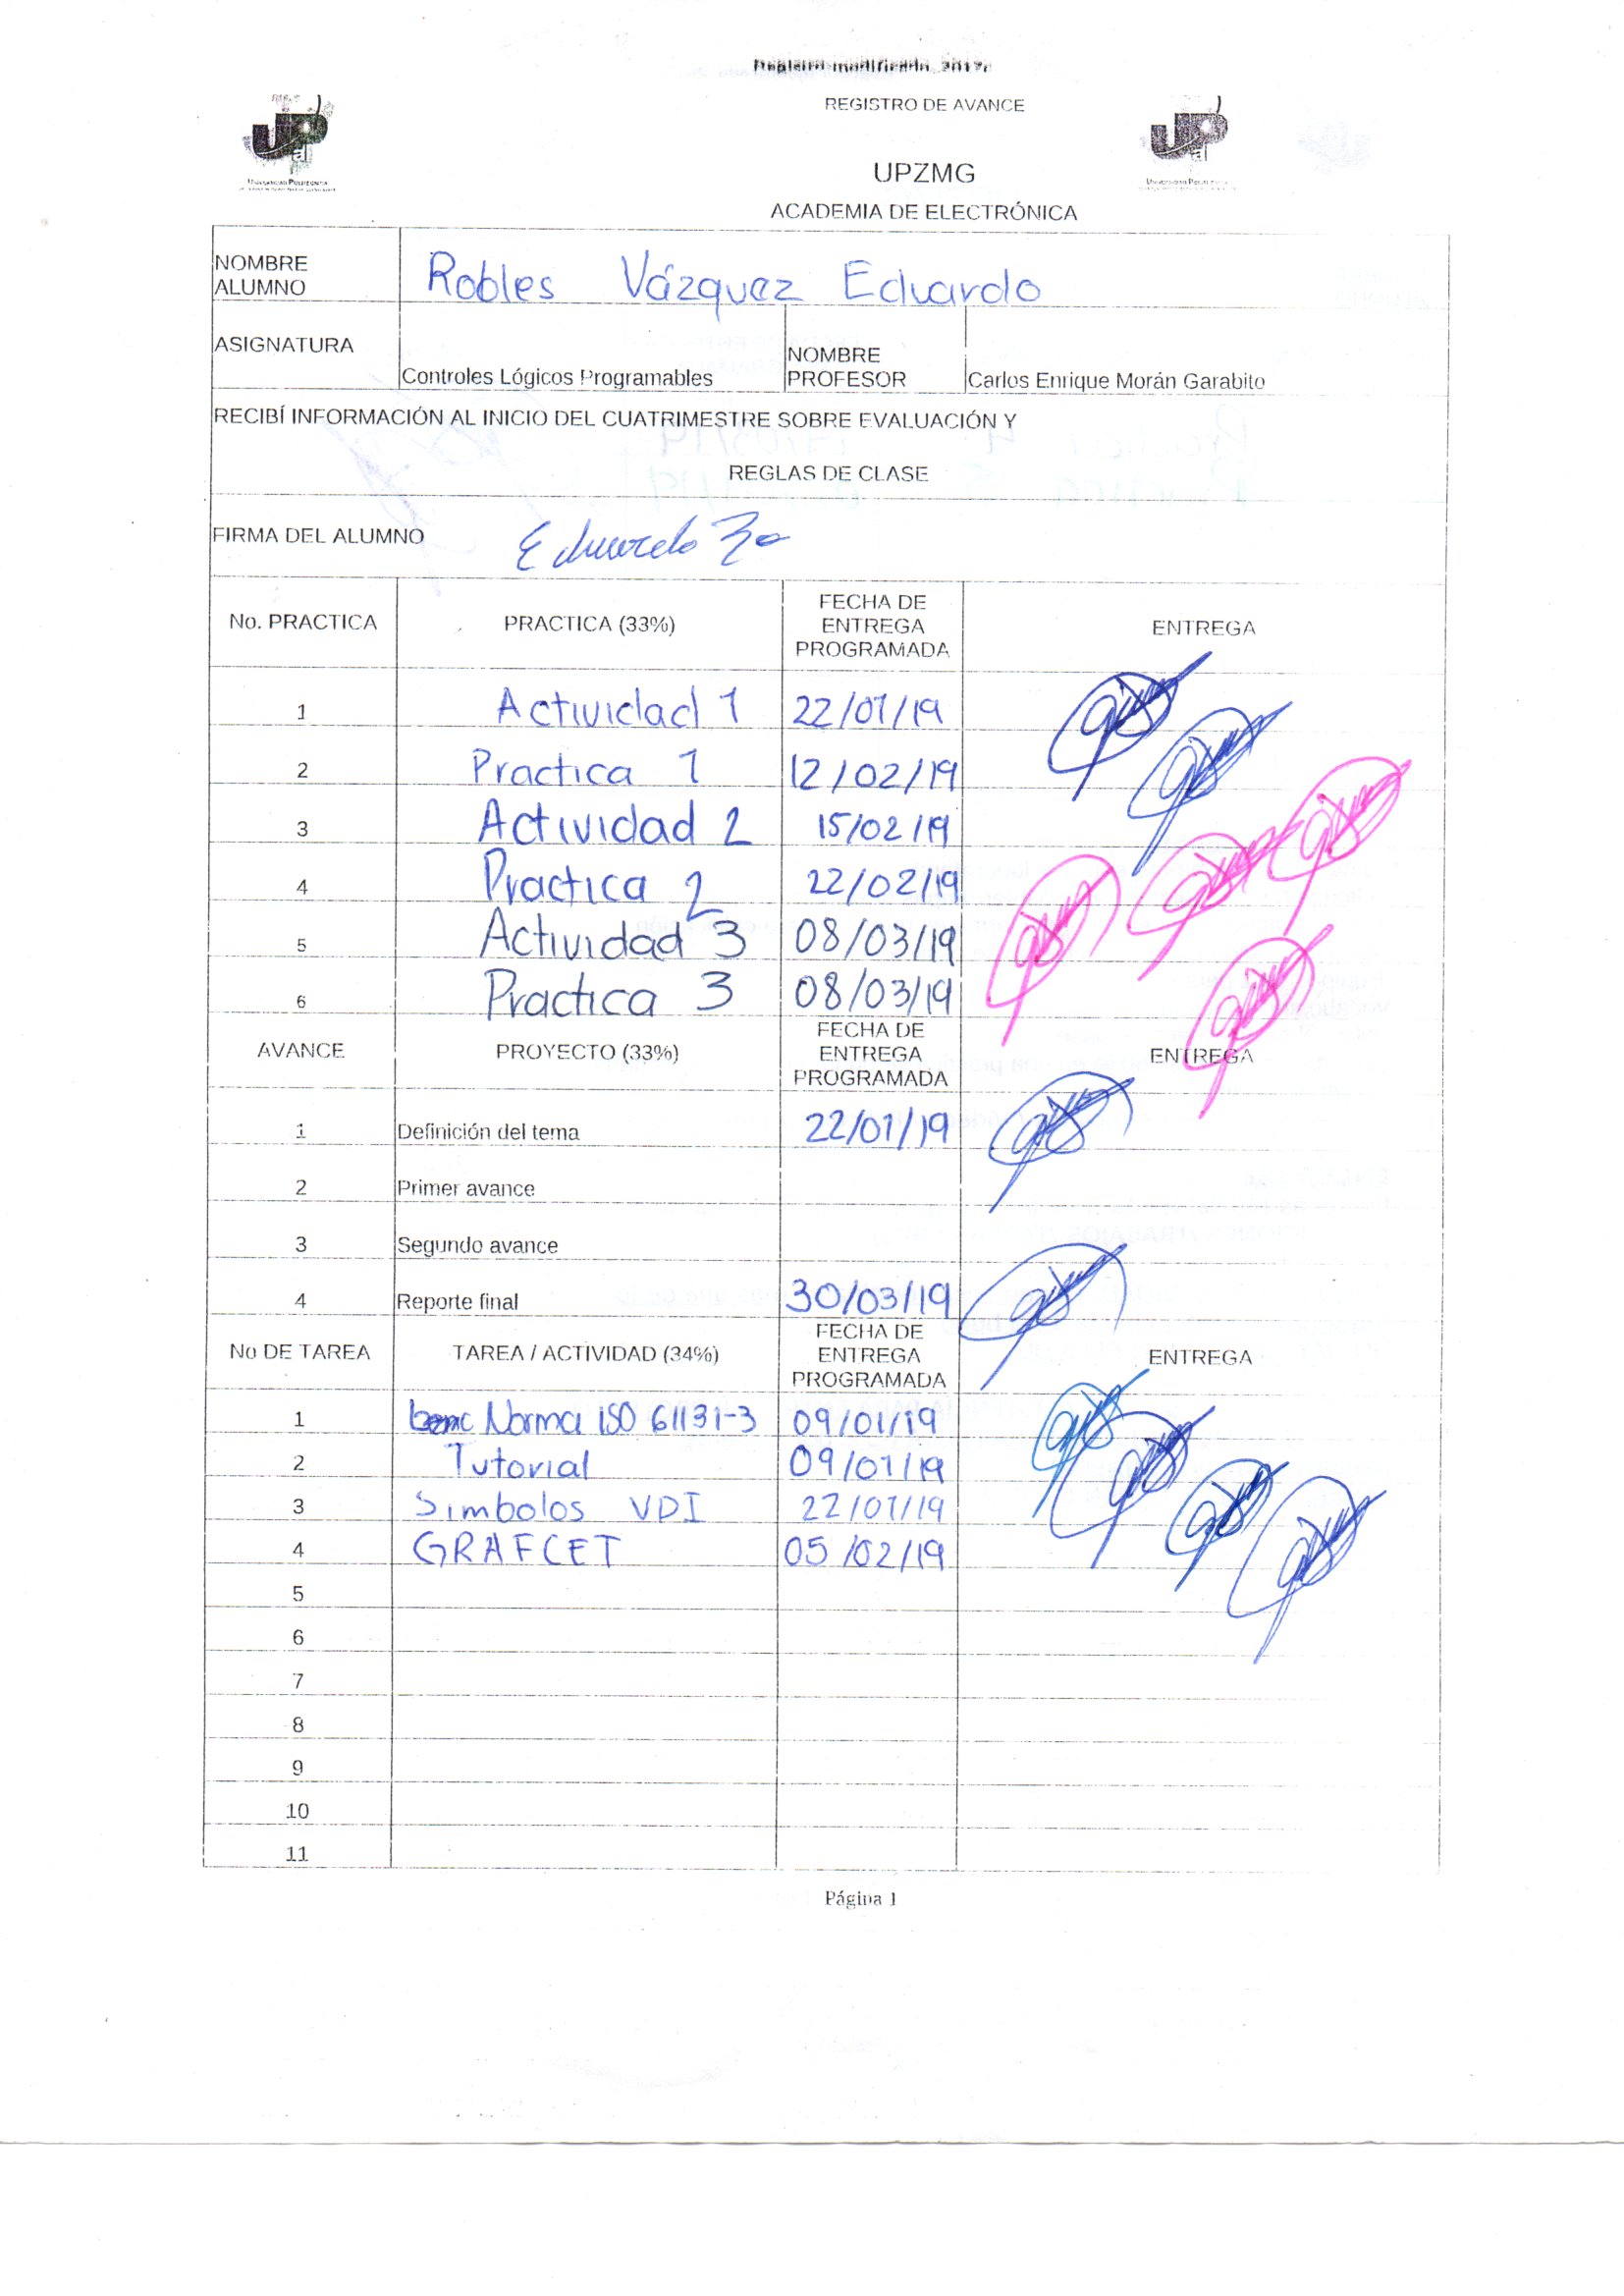 Registro modificado, 2017,
REGISTRO DE AVANCE
UPZMG
ACADEMIA DE ELECTRÓNICA
NOMBRE ALUMNO Robles Vázquez Eduardo
ASIGNATURA Controles Lógicos Programables NOMBRE PROFESOR Carlos Enrique Morán Garabito
RECIBÍ INFORMACIÓN AL INICIO DEL CUATRIMESTRE SOBRE EVALUACIÓN Y
REGLAS DE CLASE
FIRMA DEL ALUMNO Eduardo
No. PRACTICA PRACTICA (33%) FECHA DE ENTREGA PROGRAMADA ENTREGA
1 Actividad 1 22/01/19
2 Practica 1 12/02/19
3 Actividad 2 15/02/19
4 Practica 2 22/02/19
5 Actividad 3 08/03/19
6 Practica 3 08/03/19
AVANCE PROYECTO (33%) FECHA DE ENTREGA PROGRAMADA ENTREGA
1 Definición del tema 22/01/19
2 Primer avance
3 Segundo avance
4 Reporte final 30/03/19
No DE TAREA TAREA / ACTIVIDAD (34%) FECHA DE ENTREGA PROGRAMADA ENTREGA
1 Norma ISO 61131-3 09/01/19
2 Tutorial 09/01/19
3 Simbolos VDI 22/01/19
4 GRAFCET 05/02/19
5
6
7
8
9
10
11
Página 1